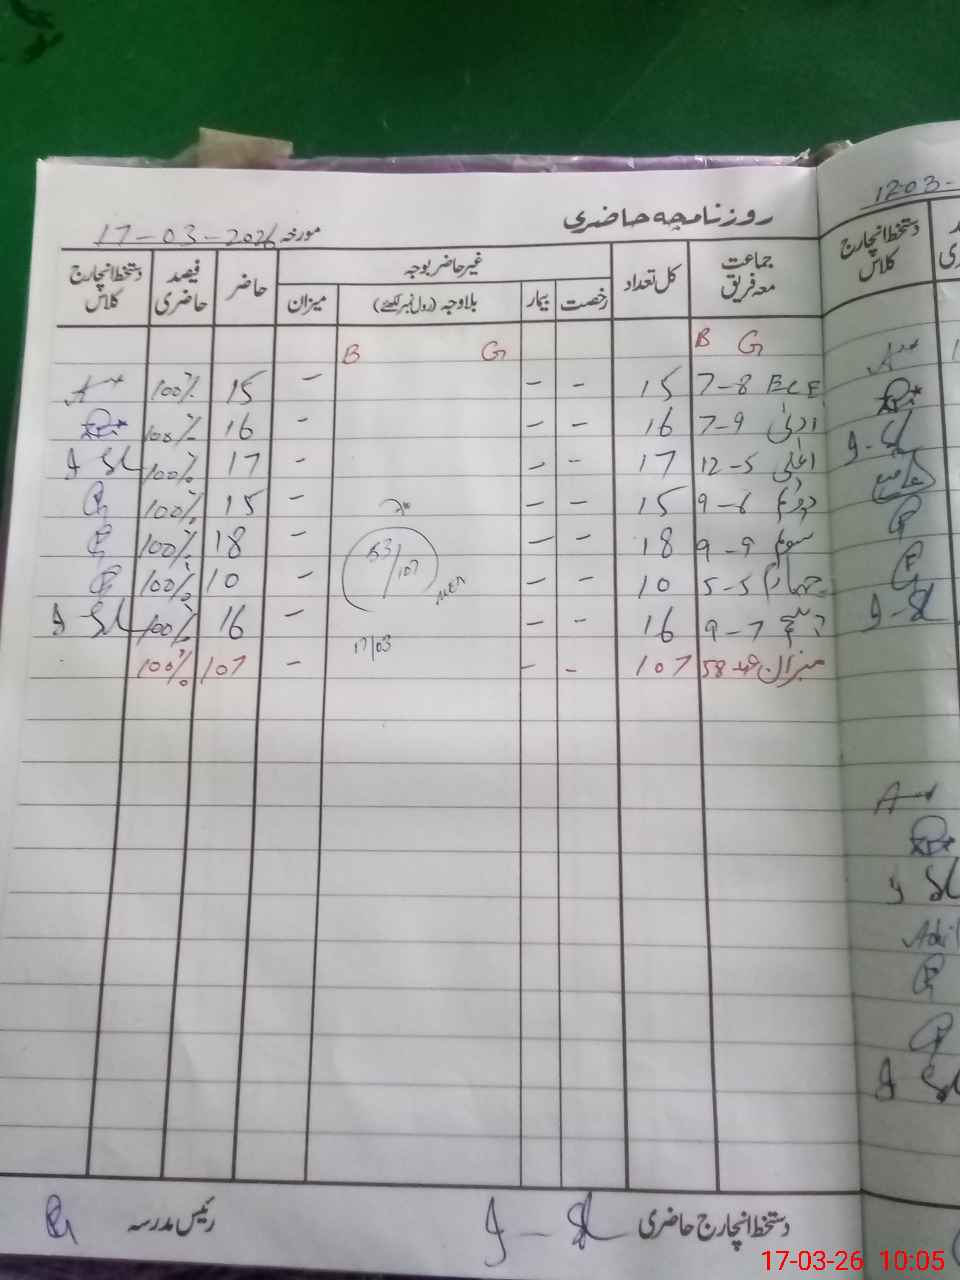 روزنامچہ حاضری
مورخہ 17-03-2026
جماعت معہ فریق کل تعداد غیر حاضر بوجہ حاضر فیصد حاضری دستخط انچارج کلاس
رخصت بیمار بلاوجہ (رول نمبر لکھئے) میزان
B G B G
ECE 7-8 15 - - - 15 100%
ادنیٰ 7-9 16 - - - 16 100%
اعلیٰ 12-5 17 - - - 17 100%
دوئم 9-6 15 - - - 15 100%
سوئم 9-9 18 - - - 18 100%
چہارم 5-5 10 - - - 10 100%
پنجم 9-7 16 - - - 16 100%
میزان 58-49 107 - - - 107 100%
53/107
17/03
دستخط انچارج حاضری
رئیس مدرسہ
1203-
دستخط انچارج کلاس
17-03-26 10:05